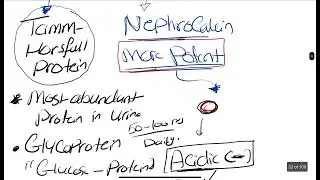 Tamm-
Horsfall
Protein
Nephrocalcin
More Potent
* Most abundant
Protein in Urine
50-100mg
Daily.
• Glycoprotein
"Glucose-Protein"
Acidic (-)